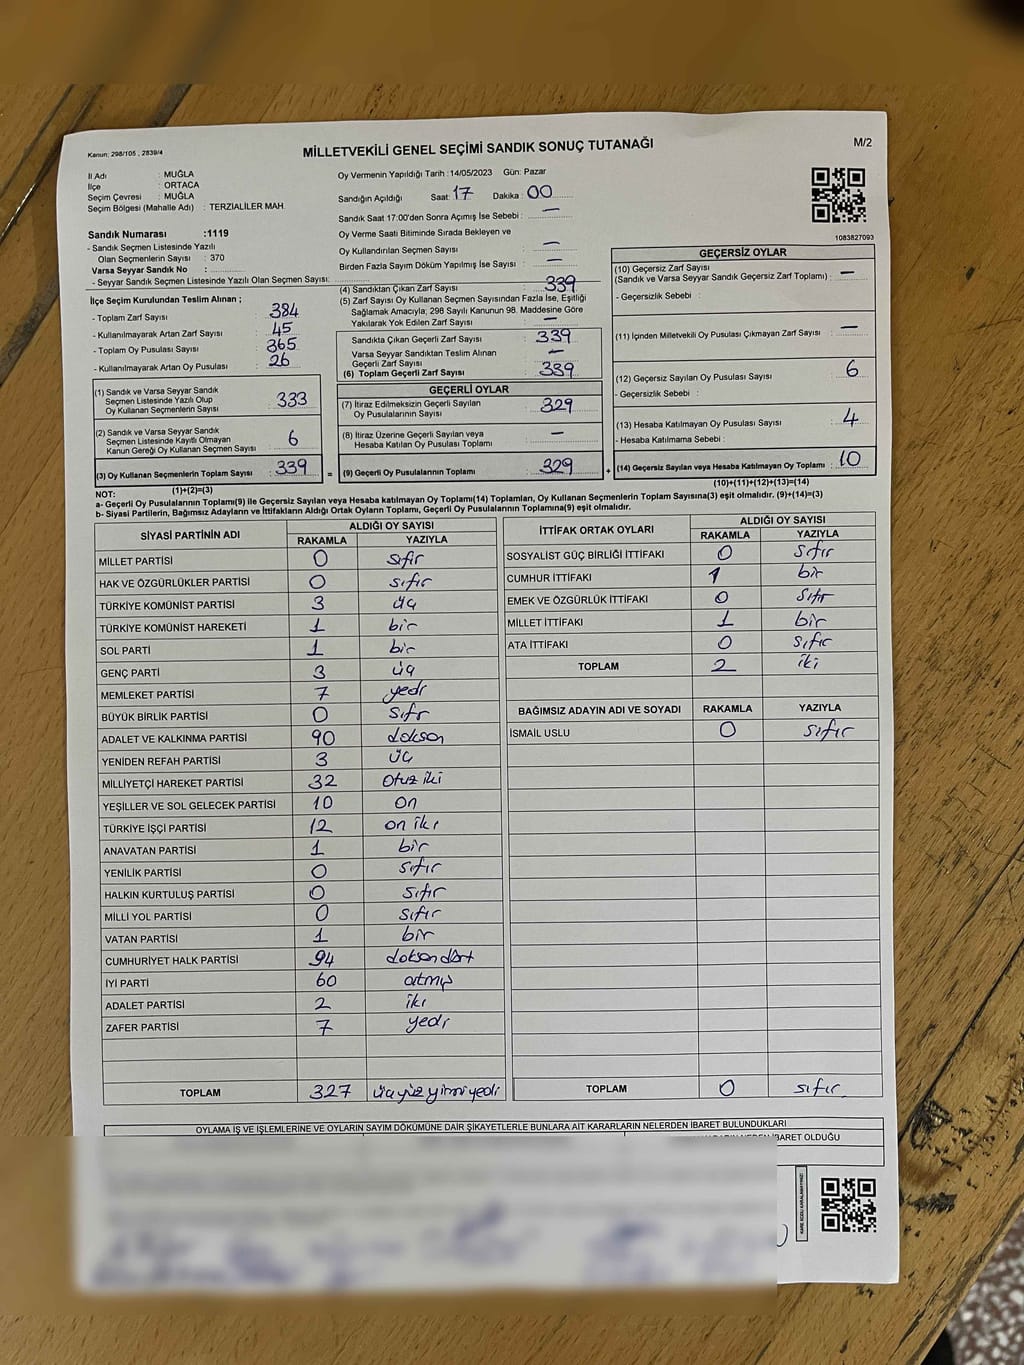 Kanun: 298/105 , 2839/4
MİLLETVEKİLİ GENEL SEÇİMİ SANDIK SONUÇ TUTANAĞI
M/2
İl Adı : MUĞLA
İlçe : ORTACA
Seçim Çevresi : MUĞLA
Seçim Bölgesi (Mahalle Adı) : TERZİALİLER MAH.
Sandık Numarası :1119
- Sandık Seçmen Listesinde Yazılı
Olan Seçmenlerin Sayısı : 370
Varsa Seyyar Sandık No :
- Seyyar Sandık Seçmen Listesinde Yazılı Olan Seçmen Sayısı:
Oy Vermenin Yapıldığı Tarih : 14/05/2023 Gün: Pazar
Sandığın Açıldığı Saat: 17 Dakika : 00
Sandık Saat 17:00'den Sonra Açımış İse Sebebi : —
Oy Verme Saati Bitiminde Sırada Bekleyen ve
Oy Kullandırılan Seçmen Sayısı —
Birden Fazla Sayım Döküm Yapılmış İse Sayısı : —
1083827093
İlçe Seçim Kurulundan Teslim Alınan ;
- Toplam Zarf Sayısı 384
- Kullanılmayarak Artan Zarf Sayısı 45
- Toplam Oy Pusulası Sayısı 365
- Kullanılmayarak Artan Oy Pusulası 26
(1) Sandık ve Varsa Seyyar Sandık
Seçmen Listesinde Yazılı Olup
Oy Kullanan Seçmenlerin Sayısı 333
(2) Sandık ve Varsa Seyyar Sandık
Seçmen Listesinde Kayıtlı Olmayan
Kanun Gereği Oy Kullanan Seçmen Sayısı 6
(3) Oy Kullanan Seçmenlerin Toplam Sayısı 339 =
(1)+(2)=(3)
(4) Sandıktan Çıkan Zarf Sayısı 339
(5) Zarf Sayısı Oy Kullanan Seçmen Sayısından Fazla İse, Eşitliği
Sağlamak Amacıyla, 298 Sayılı Kanunun 98. Maddesine Göre
Yakılarak Yok Edilen Zarf Sayısı —
Sandıkta Çıkan Geçerli Zarf Sayısı 339
Varsa Seyyar Sandıktan Teslim Alınan
Geçerli Zarf Sayısı —
(6) Toplam Geçerli Zarf Sayısı 339
GEÇERLİ OYLAR
(7) İtiraz Edilmeksizin Geçerli Sayılan
Oy Pusulalarının Sayısı 329
(8) İtiraz Üzerine Geçerli Sayılan veya
Hesaba Katılan Oy Pusulası Toplamı —
(9) Geçerli Oy Pusulalarının Toplamı 329 +
GEÇERSİZ OYLAR
(10) Geçersiz Zarf Sayısı
(Sandık ve Varsa Seyyar Sandık Geçersiz Zarf Toplamı) : —
- Geçersizlik Sebebi :
(11) İçinden Milletvekili Oy Pusulası Çıkmayan Zarf Sayısı —
(12) Geçersiz Sayılan Oy Pusulası Sayısı 6
- Geçersizlik Sebebi :
(13) Hesaba Katılmayan Oy Pusulası Sayısı 4
- Hesaba Katılmama Sebebi :
(14) Geçersiz Sayılan veya Hesaba Katılmayan Oy Toplamı : 10
(10)+(11)+(12)+(13)=(14)
NOT:
a- Geçerli Oy Pusulalarının Toplamı(9) ile Geçersiz Sayılan veya Hesaba katılmayan Oy Toplamı(14) Toplamları, Oy Kullanan Seçmenlerin Toplam Sayısına(3) eşit olmalıdır. (9)+(14)=(3)
b- Siyasi Partilerin, Bağımsız Adayların ve İttifakların Aldığı Ortak Oyların Toplamı, Geçerli Oy Pusulalarının Toplamına(9) eşit olmalıdır.
SİYASİ PARTİNİN ADI ALDIĞI OY SAYISI
RAKAMLA YAZIYLA
MİLLET PARTİSİ 0 sıfır
HAK VE ÖZGÜRLÜKLER PARTİSİ 0 sıfır
TÜRKİYE KOMÜNİST PARTİSİ 3 üç
TÜRKİYE KOMÜNİST HAREKETİ 1 bir
SOL PARTİ 1 bir
GENÇ PARTİ 3 üç
MEMLEKET PARTİSİ 7 yedi
BÜYÜK BİRLİK PARTİSİ 0 sıfır
ADALET VE KALKINMA PARTİSİ 90 doksan
YENİDEN REFAH PARTİSİ 3 üç
MİLLİYETÇİ HAREKET PARTİSİ 32 Otuz iki
YEŞİLLER VE SOL GELECEK PARTİSİ 10 On
TÜRKİYE İŞÇİ PARTİSİ 12 on iki
ANAVATAN PARTİSİ 1 bir
YENİLİK PARTİSİ 0 sıfır
HALKIN KURTULUŞ PARTİSİ 0 sıfır
MİLLİ YOL PARTİSİ 0 sıfır
VATAN PARTİSİ 1 bir
CUMHURİYET HALK PARTİSİ 94 doksan dört
İYİ PARTİ 60 altmış
ADALET PARTİSİ 2 iki
ZAFER PARTİSİ 7 yedi
TOPLAM 327 üçyüz yirmi yedi
İTTİFAK ORTAK OYLARI ALDIĞI OY SAYISI
RAKAMLA YAZIYLA
SOSYALİST GÜÇ BİRLİĞİ İTTİFAKI 0 sıfır
CUMHUR İTTİFAKI 1 bir
EMEK VE ÖZGÜRLÜK İTTİFAKI 0 sıfır
MİLLET İTTİFAKI 1 bir
ATA İTTİFAKI 0 sıfır
TOPLAM 2 iki
BAĞIMSIZ ADAYIN ADI VE SOYADI RAKAMLA YAZIYLA
İSMAİL USLU 0 sıfır
TOPLAM 0 sıfır
OYLAMA İŞ VE İŞLEMLERİNE VE OYLARIN SAYIM DÖKÜMÜNE DAİR ŞİKAYETLERLE BUNLARA AİT KARARLARIN NELERDEN İBARET BULUNDUKLARI
İBARET OLDUĞU